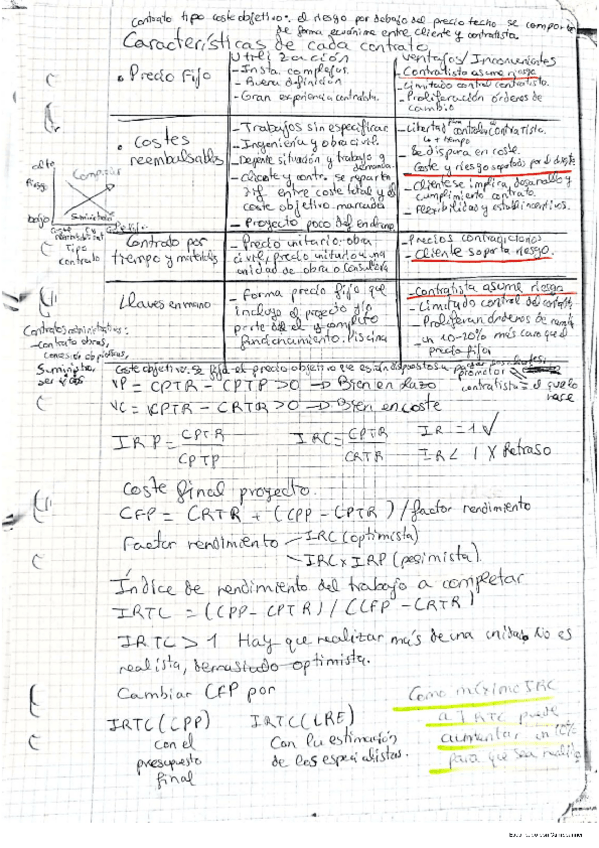 Contrato tipo coste objetivo: el riesgo por debajo del precio techo se comporta
de forma ecuánime entre cliente y contratista.
Características de cada contrato
Utilización
Ventajas / Inconvenientes
• Precio Fijo
- Insta. complejas.
- Buena definición
- Gran experiencia contratista.
- Contratista asume riesgo
- Limitado control contratista.
- Proliferación órdenes de
cambio
• Costes
reembolsables
- Trabajos sin especificar
- Ingeniería y obra civil.
- Depende situación y trabajo y
demanda
- Cliente y contr. se reparten
dif. entre coste total y el
coste objetivo marcado
- Proyecto poco def en
- Libertad para controlar contratista.
co + tiempo
- Se dispara en coste
- Coste y riesgo soportados por el cliente
- Cliente se implica, desarrollo y
cumplimiento contrato.
- Flexibilidad y
alto
Riesgo
bajo
Comprador
Suministrador
Tipo
contrato
Contrato por
tiempo y materiales
- Precio unitario: obra
civil, precio unitario una
unidad de obra o consultoría
- Precios contradictorios
- Cliente soporta riesgo.
Llaves en mano
- Forma precio fijo que
incluye el proyecto y/o
parte del el y completo
funcionamiento. Piscina
- Contratista asume riesgo
- Limitado control del contratista
- Proliferan órdenes de cambio
un 10-20% más caro que el
precio fijo
Contratos administrativos:
- Contrato obras,
concesión obpúblicas,
Suministro,
servicios
Coste objetivo: Se fija el precio objetivo que están dispuestos a pagar
promotor
contratista = el que lo
hace
VP = CPTR - CPTP > 0 → Bien en plazo
VC = CPTR - CRTR > 0 → Bien en coste
IRP = CPTR / CPTP
IRC = CPTR / CRTR
IR = 1 ✓
IR < 1 X Retraso
Coste final proyecto.
CFP = CRTR + (CPP - CPTR) / factor rendimiento
Factor rendimiento
IRC (optimista)
IRC x IRP (pesimista)
Índice de rendimiento del trabajo a completar
IRTC = (CPP - CPTR) / (CFP - CRTR)
IRTC > 1 Hay que realizar más de una unidad. No es
realista, demasiado optimista.
Cambiar CFP por
IRTC (CPP)
con el
presupuesto
final
IRTC (LRE)
Con la estimación
de los especialistas.
Como máximo IRC
a IRTC puede
aumentar un 10%
para que sea realista